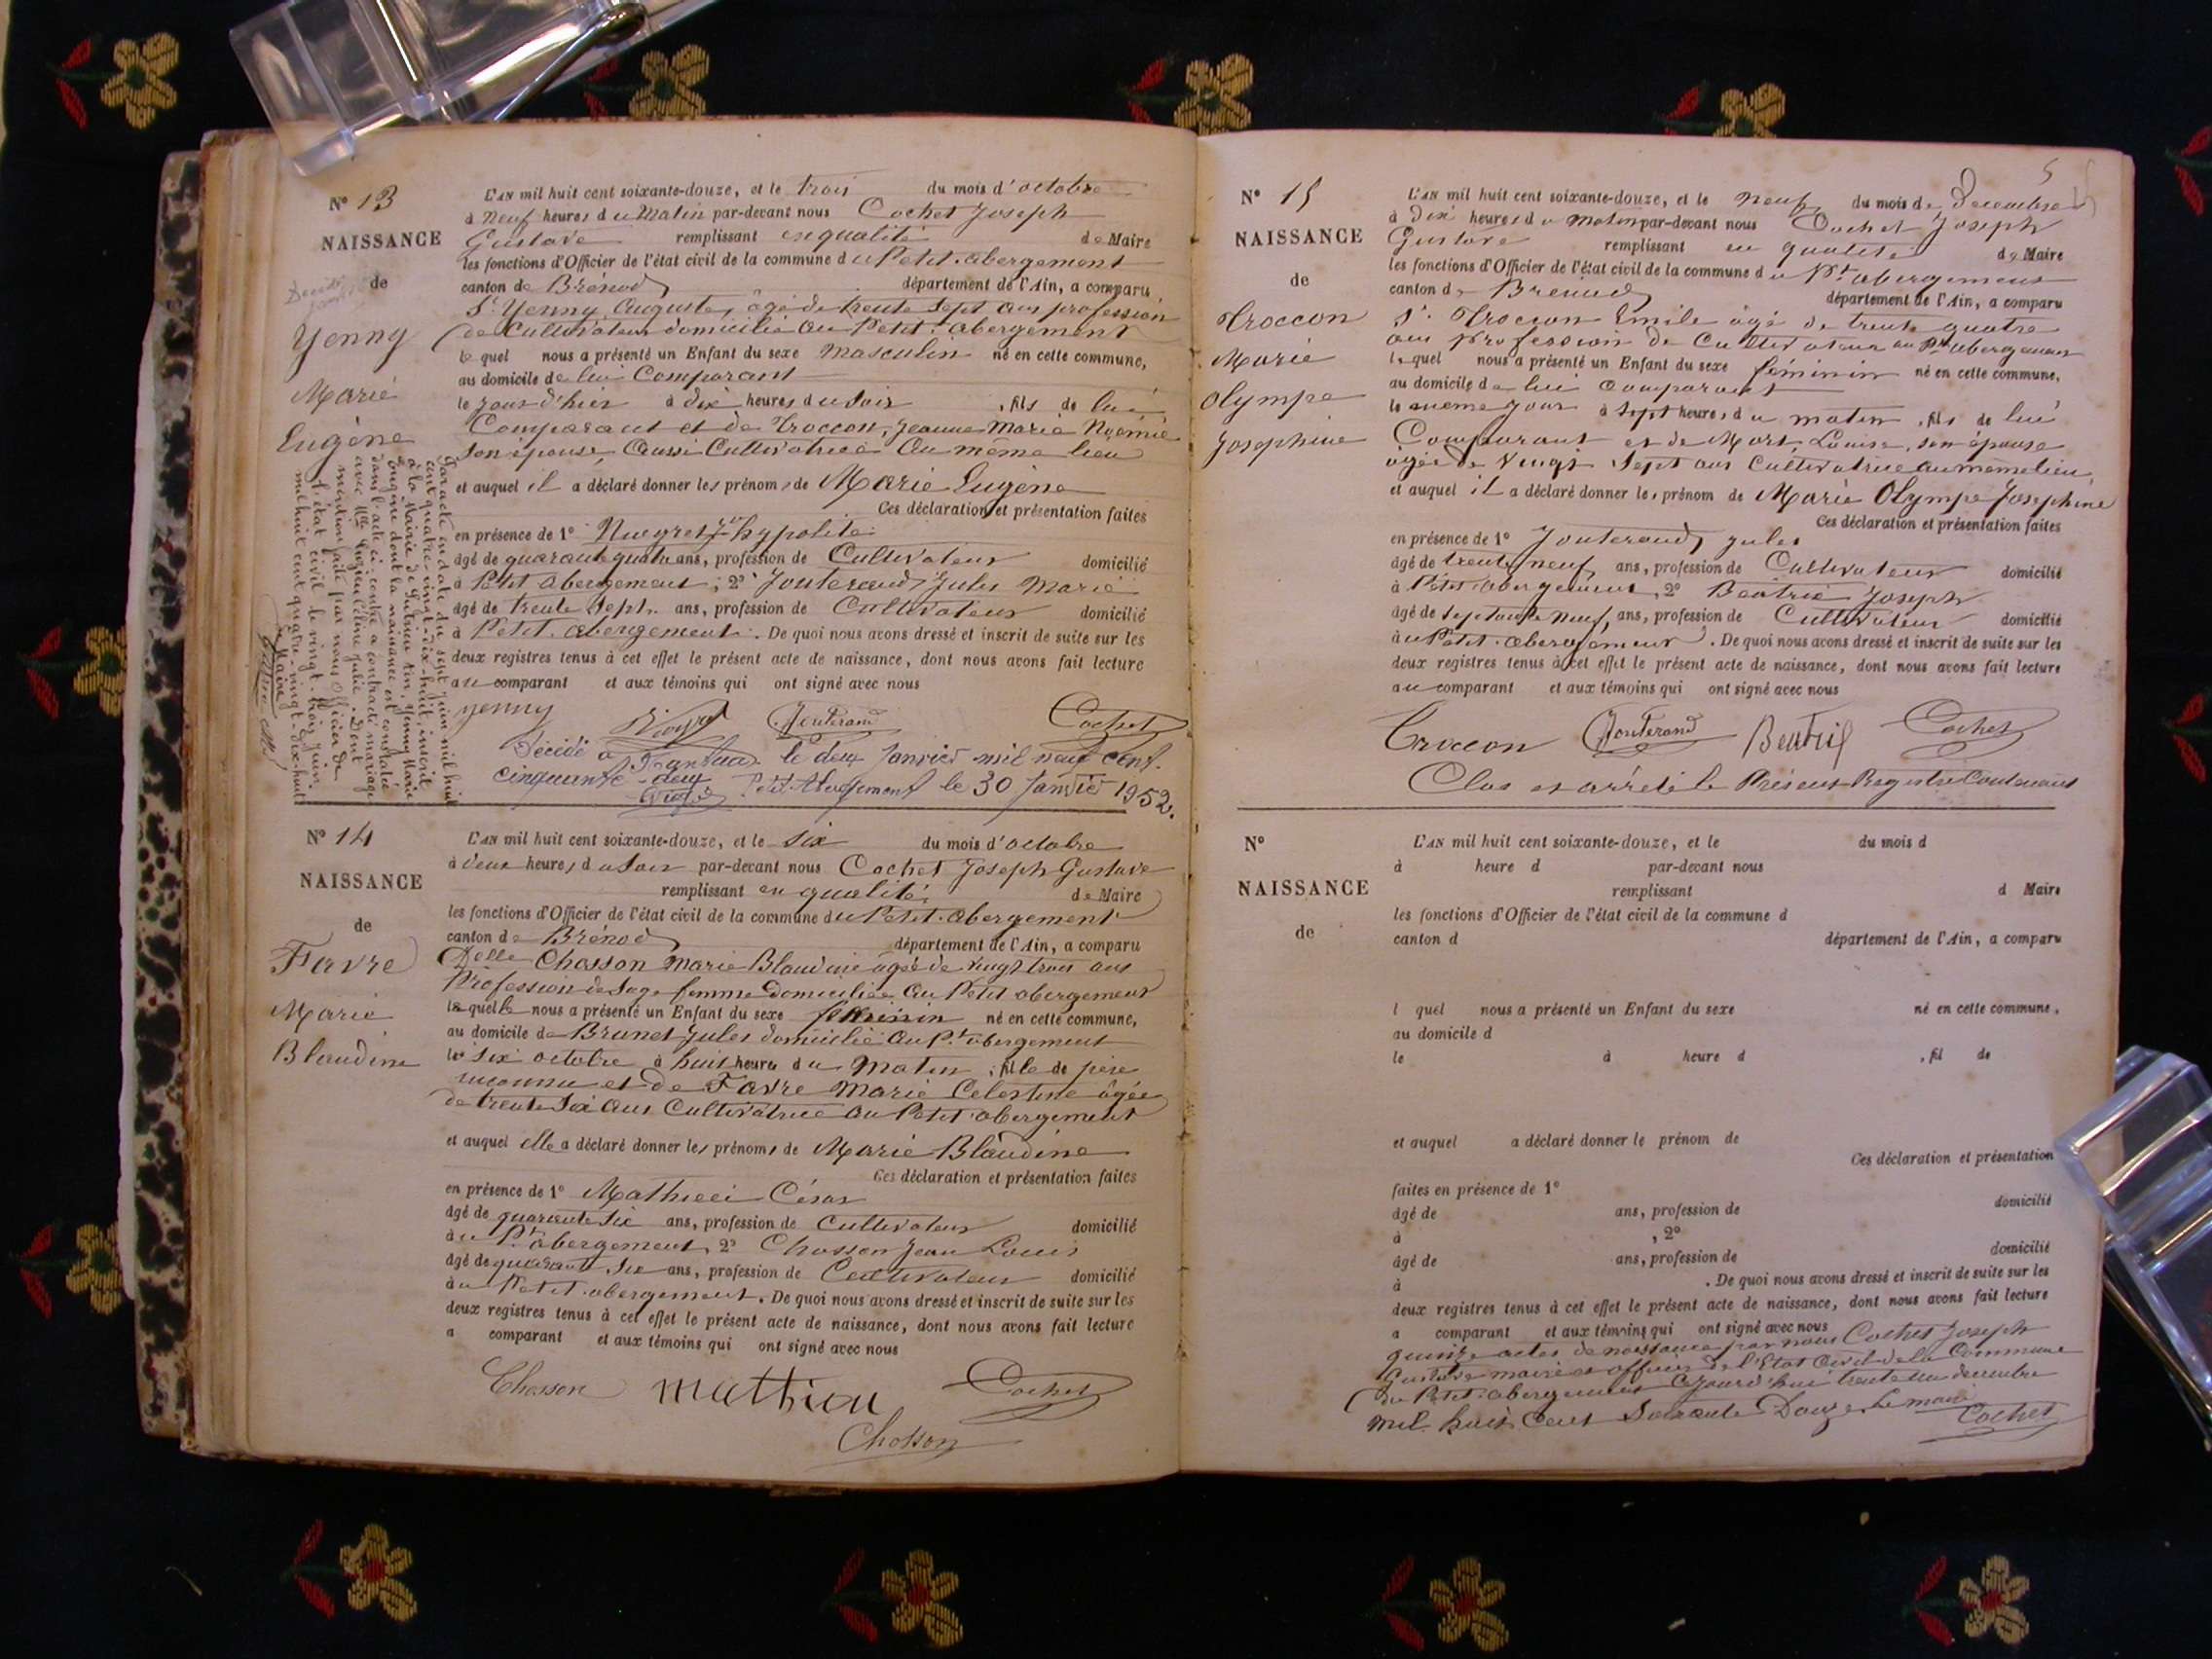 N° 13
NAISSANCE
de
Yenny
Marié
Eugène
L'AN mil huit cent soixante-douze, et le trois du mois d'octobre
à neuf heures du Matin par-devant nous Cochet Joseph
Gustave remplissant en qualité de Maire
les fonctions d'Officier de l'état civil de la commune du Petit. abergement
canton de Brénod département de l'Ain, a comparu
Sr. Yenny, Auguste, âgé de trente Sept ans profession
de Cultivateur domicilié au Petit. abergement
lequel nous a présenté un Enfant du sexe masculin né en cette commune,
au domicile de lui Comparant
le jour d'hier à dix heures du Soir, fils de lui
Comparant et de Troccon, Jeanne Marie Noémie
son épouse, aussi Cultivatrice au même lieu
et auquel il a déclaré donner les prénoms de Marie Eugène
Ces déclaration et présentation faites
en présence de 1° hypolite
âgé de quarante quatre ans, profession de Cultivateur domicilié
à Petit abergement, 2° Jouterand Jules Marié
âgé de trente Sept ans, profession de Cultivateur domicilié
à Petit. abergement. De quoi nous avons dressé et inscrit de suite sur les
deux registres tenus à cet effet le présent acte de naissance, dont nous avons fait lecture
au comparant et aux témoins qui ont signé avec nous
yenny Jouterand Cochet
Décédé à Nantua le deux Janvier mil neuf cent
cinquante-deux Petit-Abergement le 30 Janvier 1952.
Par acte en date du sept juin mil huit
cent quatre-vingt-dix-huit inscrit
à la Mairie de (Ain) Yenny Marie
Eugène dont la naissance est constatée
dans l'acte ci-contre a contracté mariage
avec Mlle Julie. Dont
mention faite par nous Officier de
l'état civil le vingt-trois juin
mil huit cent quatre-vingt-dix-huit
Le Maire
N° 14
NAISSANCE
de
Favre
Marie
Blandine
L'AN mil huit cent soixante-douze, et le six du mois d'octobre
à deux heures du Soir par-devant nous Cochet Joseph Gustave
remplissant en qualité de Maire
les fonctions d'Officier de l'état civil de la commune du Petit. abergement
canton de Brénod département de l'Ain, a comparu
Delle Chosson Marie Blandine âgée de vingt trois ans
Profession de Sage femme domiciliée au Petit abergement
laquelle nous a présenté un Enfant du sexe féminin né en cette commune,
au domicile de Brunet Jules domicilié au Pt. abergement
le six octobre à huit heures du matin, fille de père
inconnu et de Favre Marie Celestine âgée
de trente Six ans Cultivatrice au Petit. abergement
et auquel elle a déclaré donner les prénoms de Marie Blandine
Ces déclaration et présentation faites
en présence de 1° Mathieu César
âgé de quarante Six ans, profession de Cultivateur domicilié
au Pt. abergement, 2° Chosson Jean Louis
âgé de quarante Six ans, profession de Cultivateur domicilié
au Petit. abergement. De quoi nous avons dressé et inscrit de suite sur les
deux registres tenus à cet effet le présent acte de naissance, dont nous avons fait lecture
a comparant et aux témoins qui ont signé avec nous
Chosson mathieu Cochet
Chosson
5
N° 15
NAISSANCE
de
Troccon
Marie
Olympe
Josephine
L'AN mil huit cent soixante-douze, et le neuf du mois de Décembre
à dix heures du matin par-devant nous Cochet Joseph
Gustave remplissant en qualité de Maire
les fonctions d'Officier de l'état civil de la commune du Pt. abergement
canton de Brenod département de l'Ain, a comparu
Sr. Troccon Emile âgé de trente quatre
ans Profession de Cultivateur au Pt. abergement
lequel nous a présenté un Enfant du sexe féminin né en cette commune,
au domicile de lui comparant
le même jour à Sept heures du matin, fils de lui
Comparant et de Mort, Louise, son épouse
âgée de Vingt Sept ans Cultivatrice au même lieu
et auquel il a déclaré donner les prénom de Marie Olympe Josephine
Ces déclaration et présentation faites
en présence de 1° Jouterand, Jules
âgé de trente neuf ans, profession de Cultivateur domicilié
à Petit abergement, 2° Béatrix Joseph
âgé de Septante neuf ans, profession de Cultivateur domicilié
au Petit. abergement. De quoi nous avons dressé et inscrit de suite sur les
deux registres tenus à cet effet le présent acte de naissance, dont nous avons fait lecture
au comparant et aux témoins qui ont signé avec nous
Troccon Jouterand Beatrix Cochet
Clos et arrêté le Présent Registre Contenant
N°
NAISSANCE
de
L'AN mil huit cent soixante-douze, et le du mois d
à heure d par-devant nous
remplissant d Maire
les fonctions d'Officier de l'état civil de la commune d
canton d département de l'Ain, a comparu
l quel nous a présenté un Enfant du sexe né en cette commune,
au domicile d
le à heure d , fil de
et auquel a déclaré donner le prénom de
Ces déclaration et présentation
faites en présence de 1°
âgé de ans, profession de domicilié
à , 2°
âgé de ans, profession de domicilié
à . De quoi nous avons dressé et inscrit de suite sur les
deux registres tenus à cet effet le présent acte de naissance, dont nous avons fait lecture
a comparant et aux témoins qui ont signé avec nous
quinze actes de naissance par nous Cochet Joseph
Gustave maire et officier de l'Etat Civil de la Commune
du Petit. abergement Cejourd'hui trente un decembre
mil huit Cent Soixante Douze Le maire
Cochet